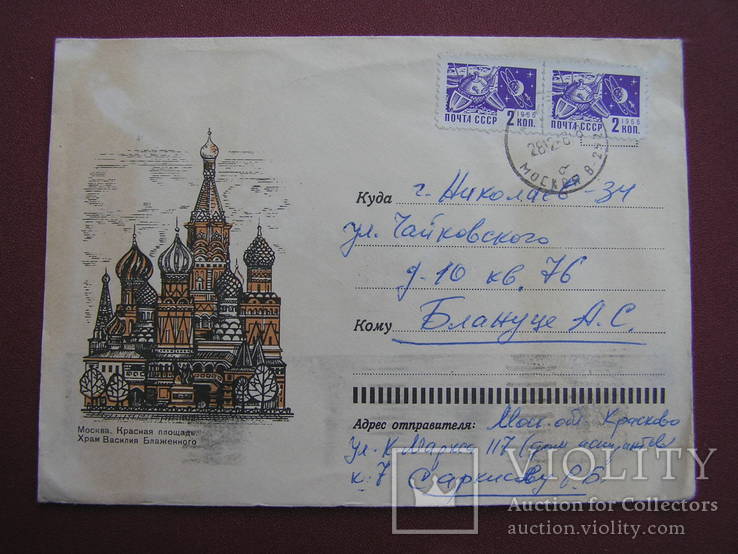 1966
ПОЧТА СССР 2 КОП.
1966
ПОЧТА СССР 2 КОП.
МОСКВА
Куда г. Николаев-34
ул. Чайковского
д-10 кв. 76
Кому Блануце А.С.
Москва. Красная площадь.
Храм Василия Блаженного
Адрес отправителя: Мос. об. Красково
ул. К Маркса 117 (дом
к. 7
VIOLITY
Auction for Collectors
auction.violity.com